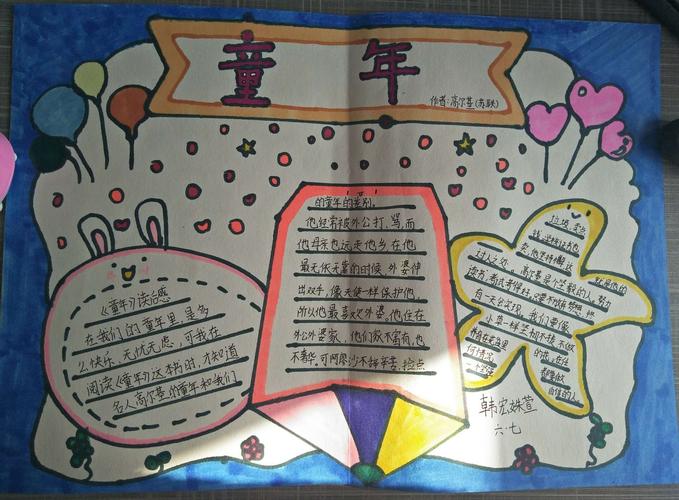 童年
作者:高尔基(苏联)
《童年》读后感
在我们的童年里是多
么快乐、无忧无虑,可我在
阅读《童年》这本书时,才知道
名人高尔基的童年和我们
的童年的差别。
他经常被外公打、骂,而
他母亲也远走他乡,在他
最无依无靠的时候,外婆伸
出双手,像天使一样保护他,
所以他最喜欢外婆,他住在
外公外婆家,他们家不富有,也
不奢华。可阿廖沙不辞辛苦,捡点
垃圾,卖点
钱
过人之处。高尔基是个坚毅的人,努力
读书
有一天会实现,我们要像
小草一样坚韧不拔,不做
都要做
自信的人
韩宏姝萱
六·七